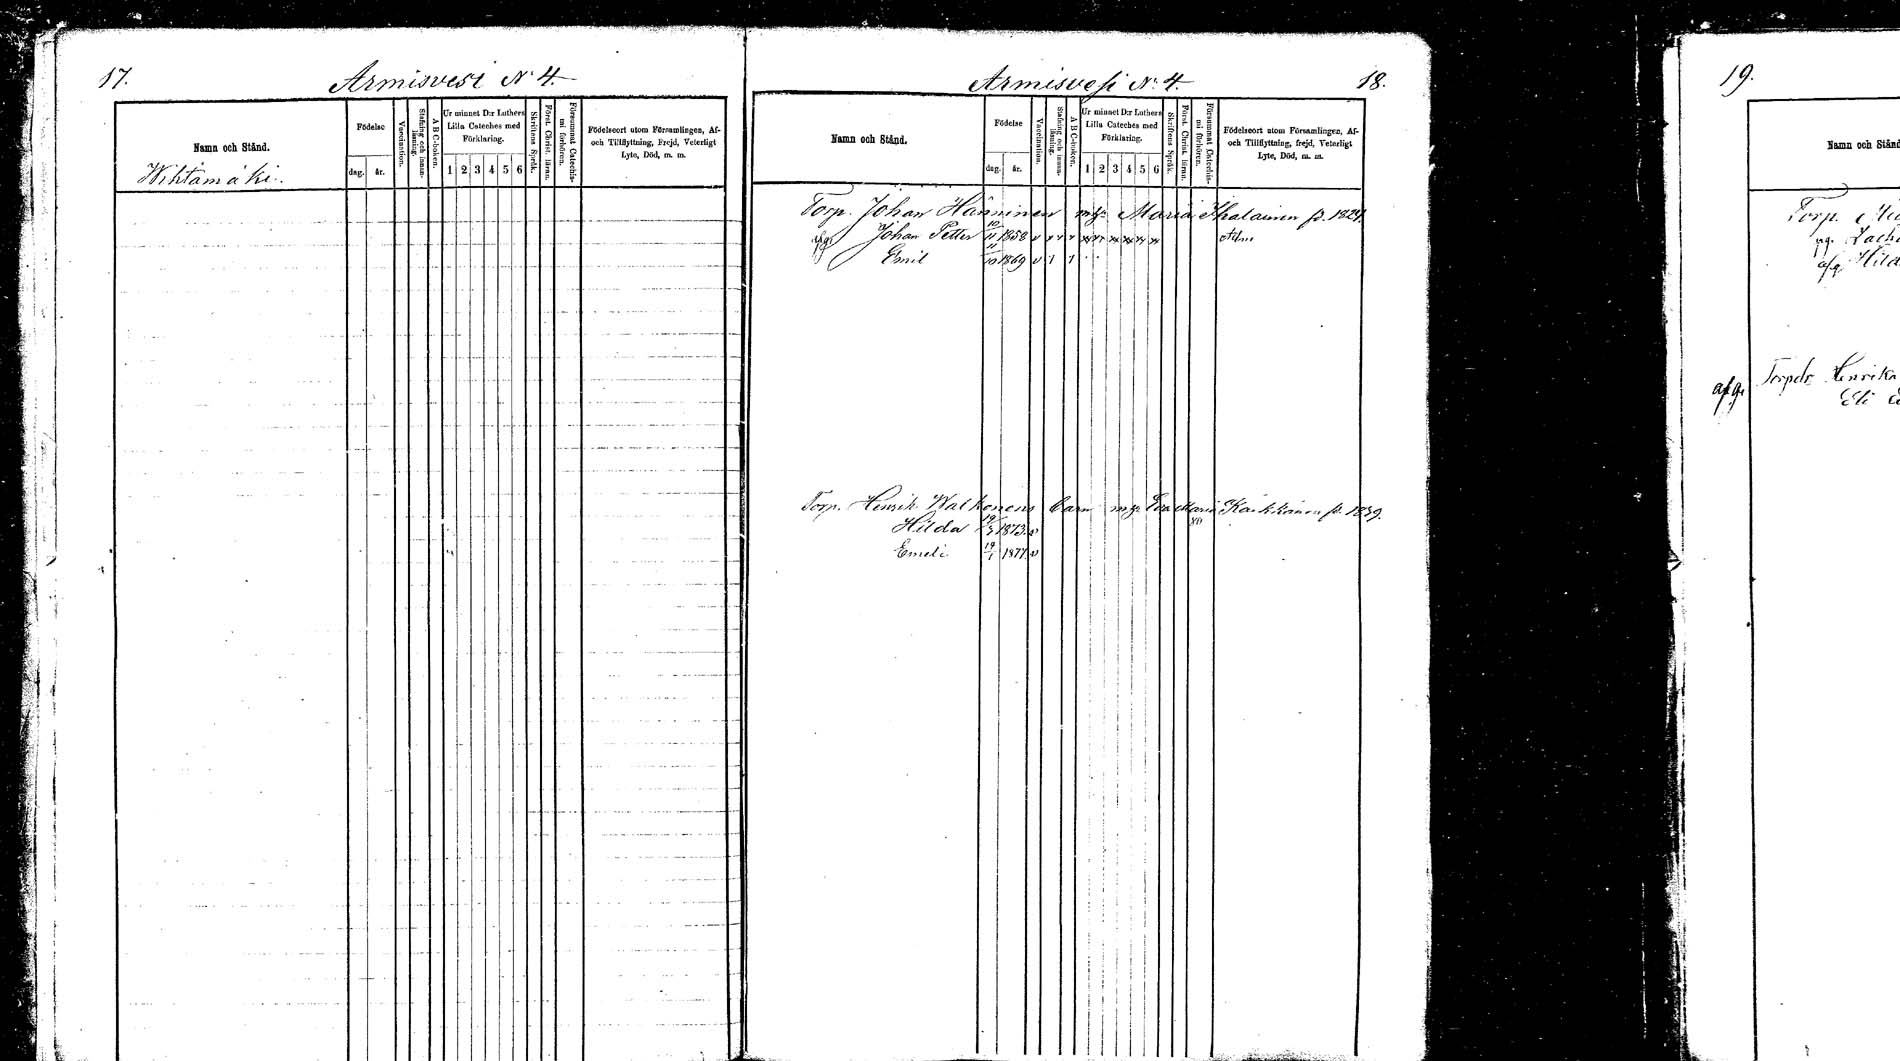 17.
Armisvesi No 4.
Namn och Stånd.
Födelse
dag. år.
Vaccination.
Stafning och innan-läsning.
A B C-boken.
Ur minnet D:r Luthers Lilla Cateches med Förklaring.
1 2 3 4 5 6
Skriftens Språk.
Först. Christ. läran.
Försummat Catechis-mi förhören.
Födelseort utom Församlingen, Af-
och Tillflyttning, Frejd, Veterligt
Lyte, Död, m. m.
Wihtamäki.
Armisvesi No. 4.
18.
Namn och Stånd.
Födelse
dag. år.
Vaccination.
Stafning och innan-läsning.
A B C-boken.
Ur minnet D:r Luthers Lilla Cateches med Förklaring.
1 2 3 4 5 6
Skriftens Språk.
Först. Christ. läran.
Försummat Catechis-mi förhören.
Födelseort utom Församlingen, Af-
och Tillflyttning, frejd, Veterligt
Lyte, Död, m. m.
Torp. Johan Hänninen Maria Ihalainen f. 1824.
afg. Johan Petter 1858
Emil 1869
Torp. Henrik Walkonens barn Eva Maria Kärkkäinen f. 1839.
Hilda 19/3 1873.
Emeli 19/1 1877.
19.
Namn och Stånd
Torp.
Hild
afg. Torpdr. Henrika